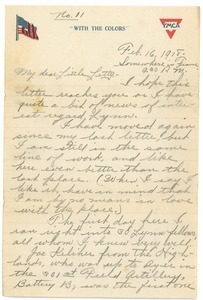 No. 11
YMCA
"WITH THE COLORS"
Feb. 16, 1918.
Somewhere in France
My dear Little Lotta-
I hope this
letter reaches you as I have
quite a bit of news of inter-
est regard. Lynn.
I have moved again
since my last letter but
I am still in the same
line of work, and like
here even better than the
last place. (When I say I
like it, have in mind that
I am by no means in love
with the place.)
The first day here I
ran right into 30 Lynn fellows
all whom I knew very well.
Joe Kelcher from the High-
lands, who was up to Ayer in
the 301 at Field Artillery,
Battery B, was the first one